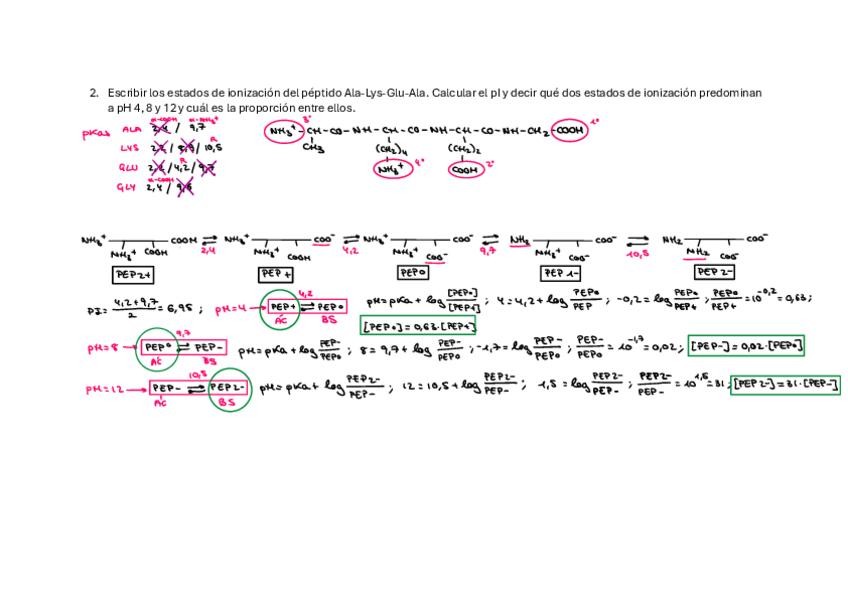 2. Escribir los estados de ionización del péptido Ala-Lys-Glu-Ala. Calcular el pI y decir qué dos estados de ionización predominan
a pH 4, 8 y 12 y cuál es la proporción entre ellos.
α-COOH α-NH3+
pKas ALA 2,4 / 9,7
R
LYS 2,2 / 8,9 / 10,5
R
GLU 2,2 / 4,2 / 9,7
α-COOH
GLY 2,4 / 9,8
3º 1º
NH3+ – CH – CO – NH – CH – CO – NH – CH – CO – NH – CH2 – COOH
CH3 (CH2)4 (CH2)2
NH3+ 4º COOH 2º
NH3+ COOH ⇌ NH3+ COO- ⇌ NH3+ COO- ⇌ NH2 COO- ⇌ NH2 COO-
NH3+ COOH 2,4 NH3+ COOH 4,2 NH3+ COO- 9,7 NH3+ COO- 10,5 NH2 COO-
PEP2+ PEP+ PEP0 PEP1- PEP2-
PI = 4,2+9,7 / 2 = 6,95 ; pH=4 → PEP+ ⇌ 4,2 PEP0 pH = pKa + log [PEP0]/[PEP+] ; 4 = 4,2 + log PEP0/PEP ; -0,2 = log PEP0/PEP+ ; PEP0/PEP+ = 10^-0,2 = 0,63 ;
AC BS [PEP0] = 0,63·[PEP+]
pH=8 → PEP0 ⇌ 9,7 PEP- pH = pKa + log PEP-/PEP0 ; 8 = 9,7 + log PEP-/PEP0 ; -1,7 = log PEP-/PEP0 ; PEP-/PEP0 = 10^-1,7 = 0,02 ; [PEP-] = 0,02·[PEP0]
AC BS
pH=12 → PEP- ⇌ 10,5 PEP2- pH = pKa + log PEP2-/PEP- ; 12 = 10,5 + log PEP2-/PEP- ; 1,5 = log PEP2-/PEP- ; PEP2-/PEP- = 10^1,5 = 31 ; [PEP2-] = 31·[PEP-]
AC BS